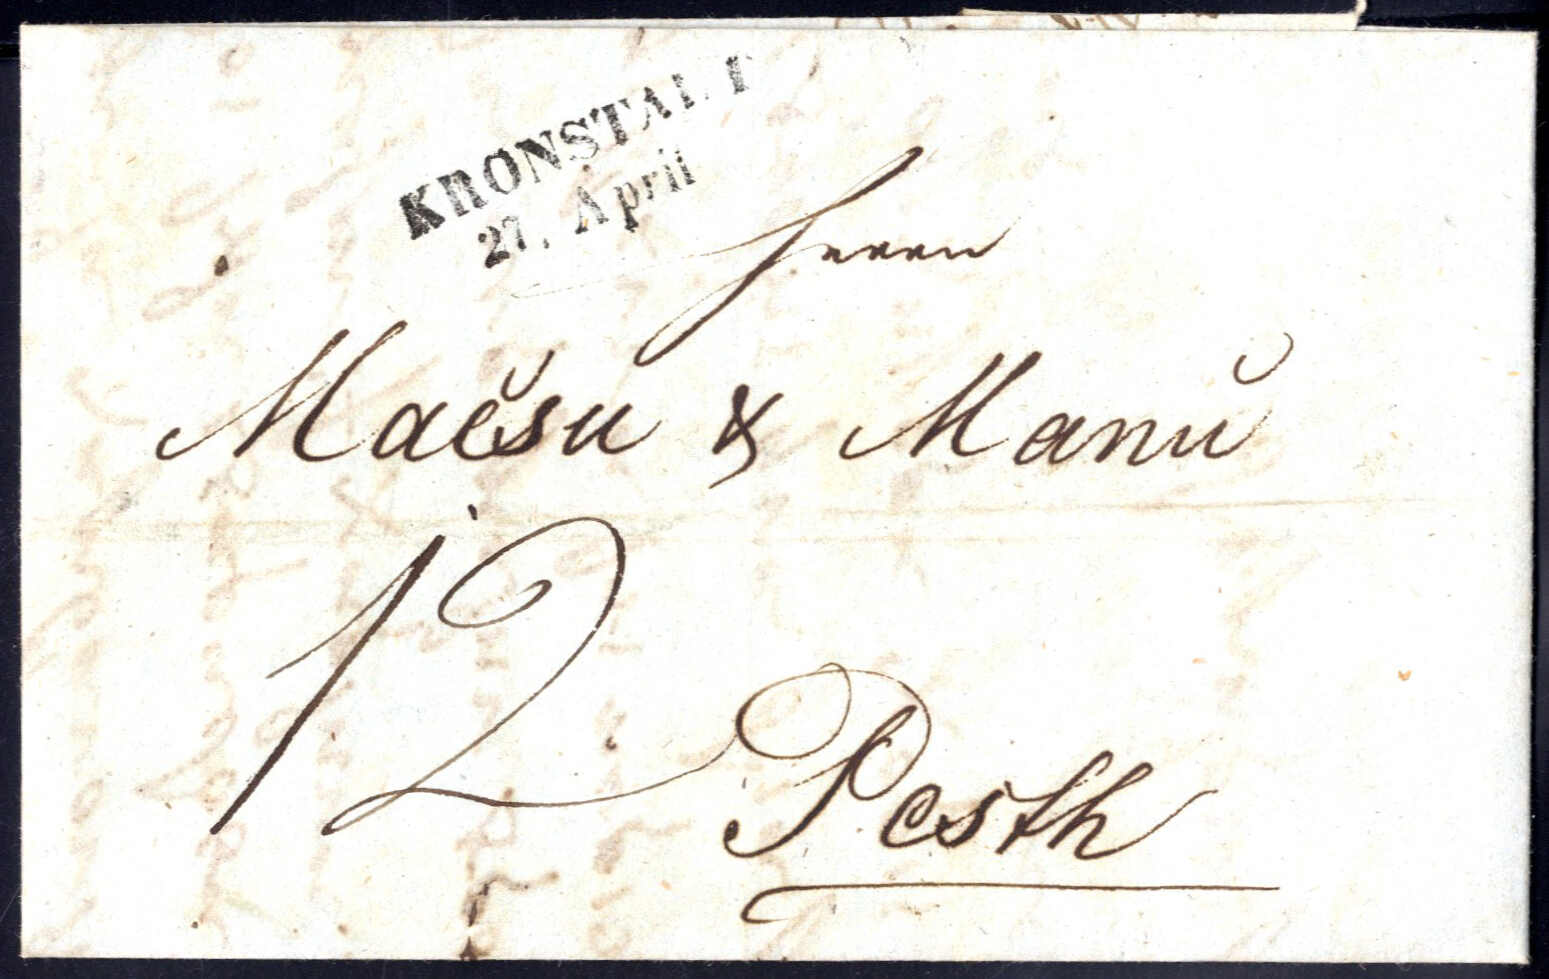 KRONSTADT
27. April
Herrn
Mačsu & Manŭ
12
Pesth